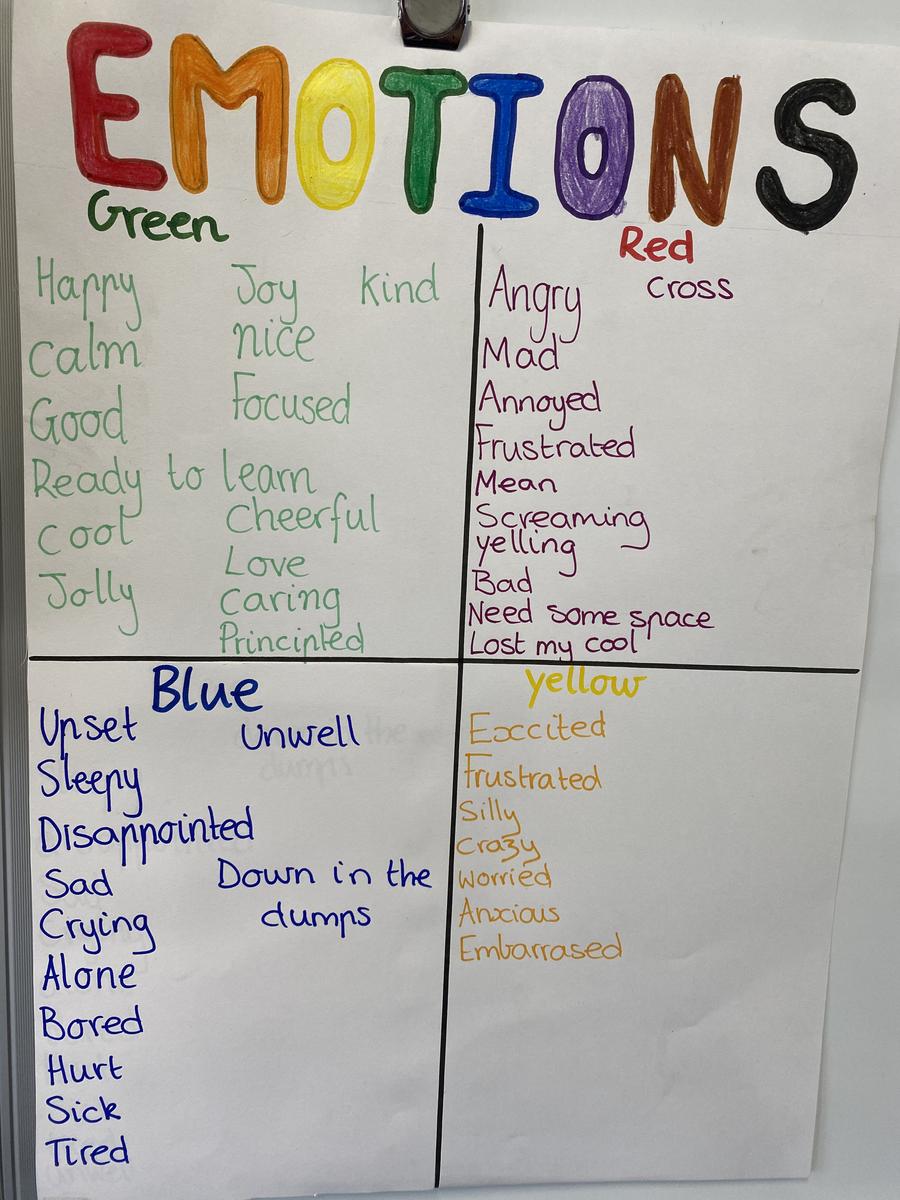 EMOTIONS
Green
Happy Joy Kind
Calm nice
Good Focused
Ready to learn
Cool Cheerful
Love
Jolly Caring
Principled
Red
Angry Cross
Mad
Annoyed
Frustrated
Mean
Screaming
yelling
Bad
Need some space
Lost my cool
Blue
Upset Unwell
Sleepy
Disappointed
Sad Down in the
Crying dumps
Alone
Bored
Hurt
Sick
Tired
yellow
Excited
Frustrated
Silly
Crazy
Worried
Anxious
Embarrased